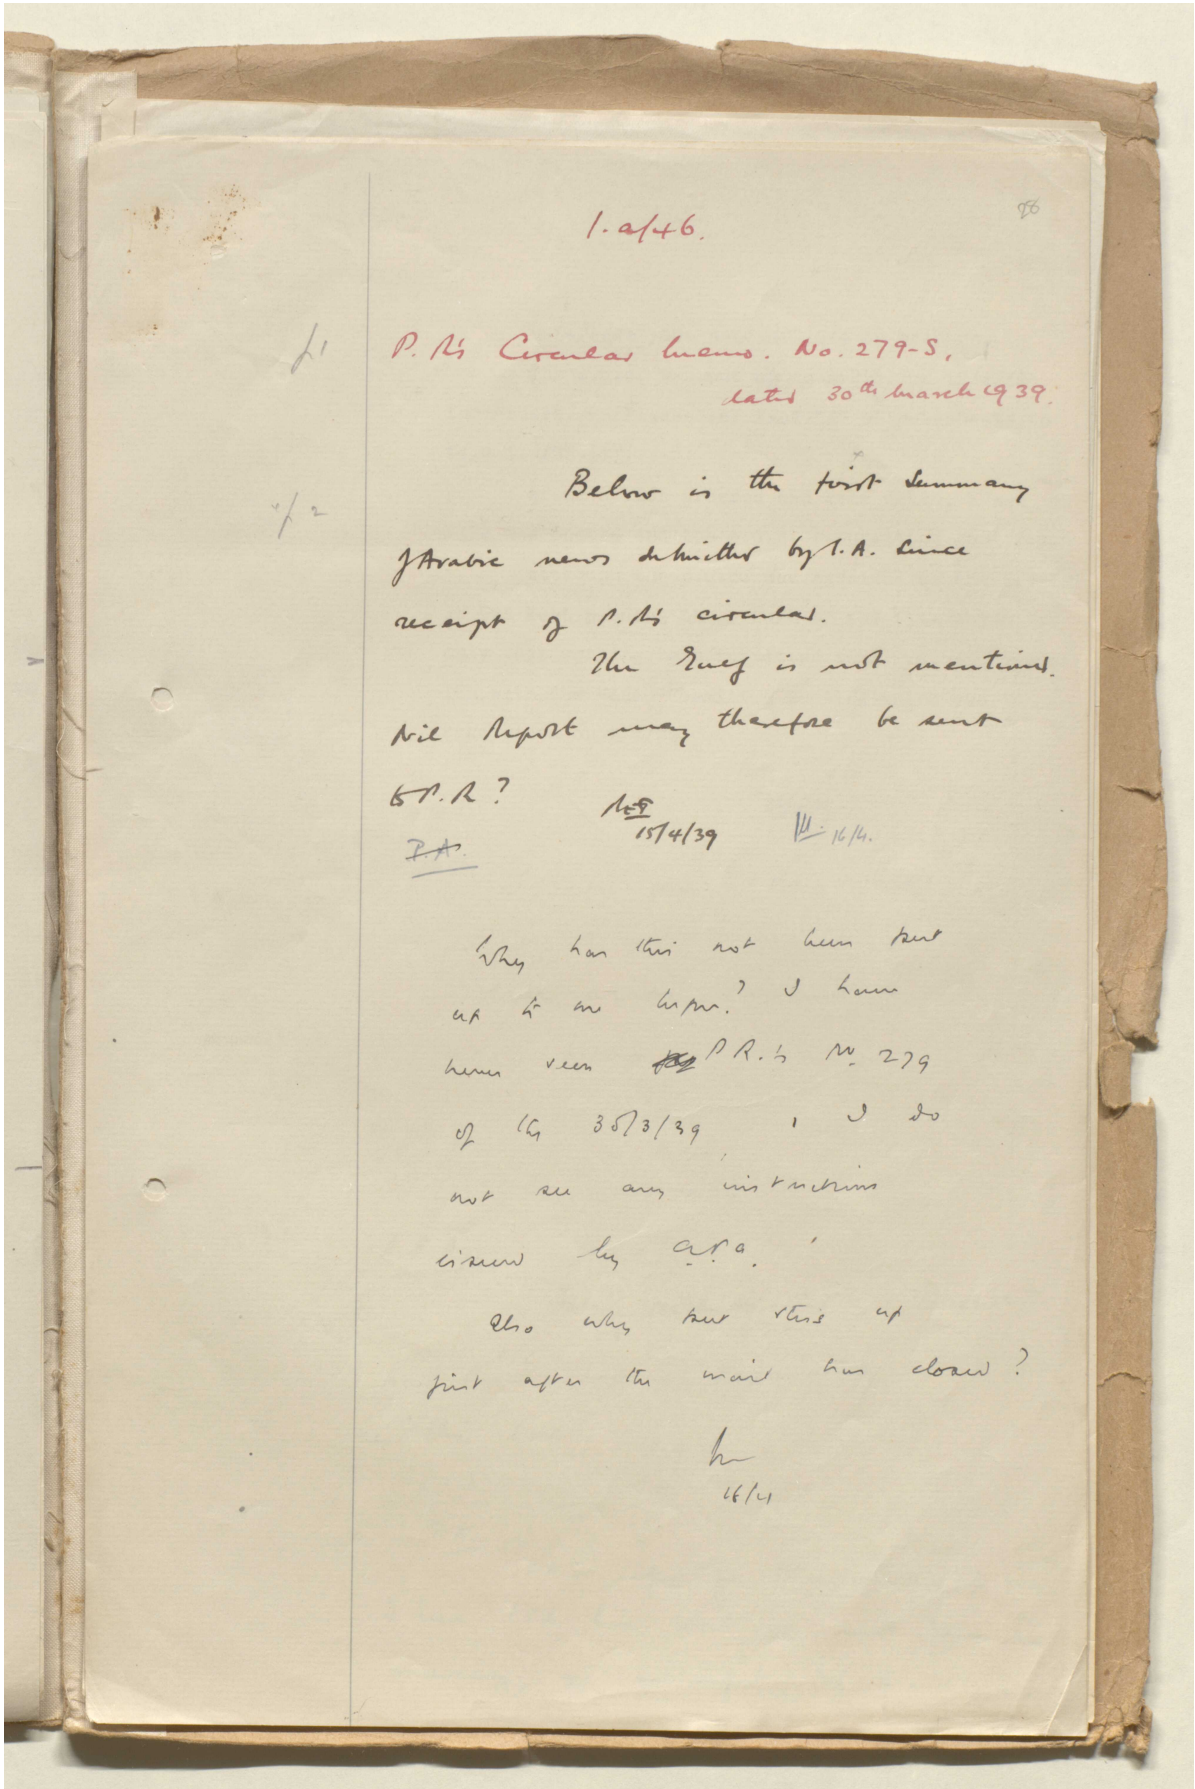 28
1.a/46.
f1
P.R's Circular Memo. No. 279-S,
dated 30th March 1939.
f 2
Below is the first summary
of Arabic news submitted by I.A. since
receipt of P.R's circular.
The Gulf is not mentioned.
Nil Report may therefore be sent
to P.R?
15/4/39
16/4.
P.A.
Why has this not been put
up to me before? I have
never seen P.R.'s No. 279
of the 30/3/39, I do
not see any instructions
issued by A.P.A.
Also why put this up
just after the mail has closed?
16/4